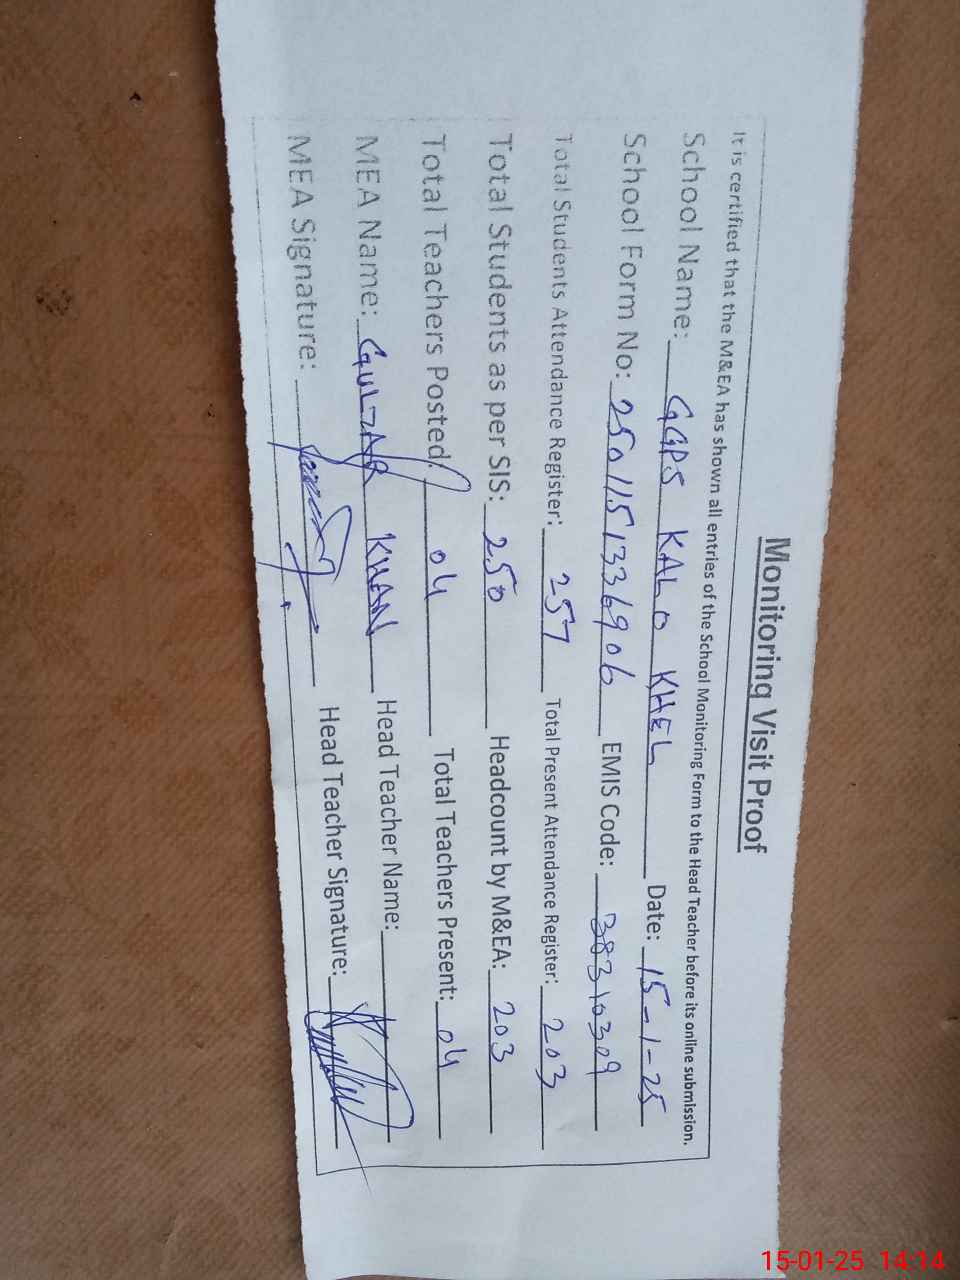 Monitoring Visit Proof
It is certified that the M&EA has shown all entries of the School Monitoring Form to the Head Teacher before its online submission.
School Name: GGPS KALO KHEL Date: 15-1-25
School Form No: 2501151336906 EMIS Code: 38310309
Total Students Attendance Register: 257 Total Present Attendance Register: 203
Total Students as per SIS: 250 Headcount by M&EA: 203
Total Teachers Posted: 04 Total Teachers Present: 04
MEA Name: GULZAR KHAN Head Teacher Name:
MEA Signature: Head Teacher Signature:
15-01-25 14:14